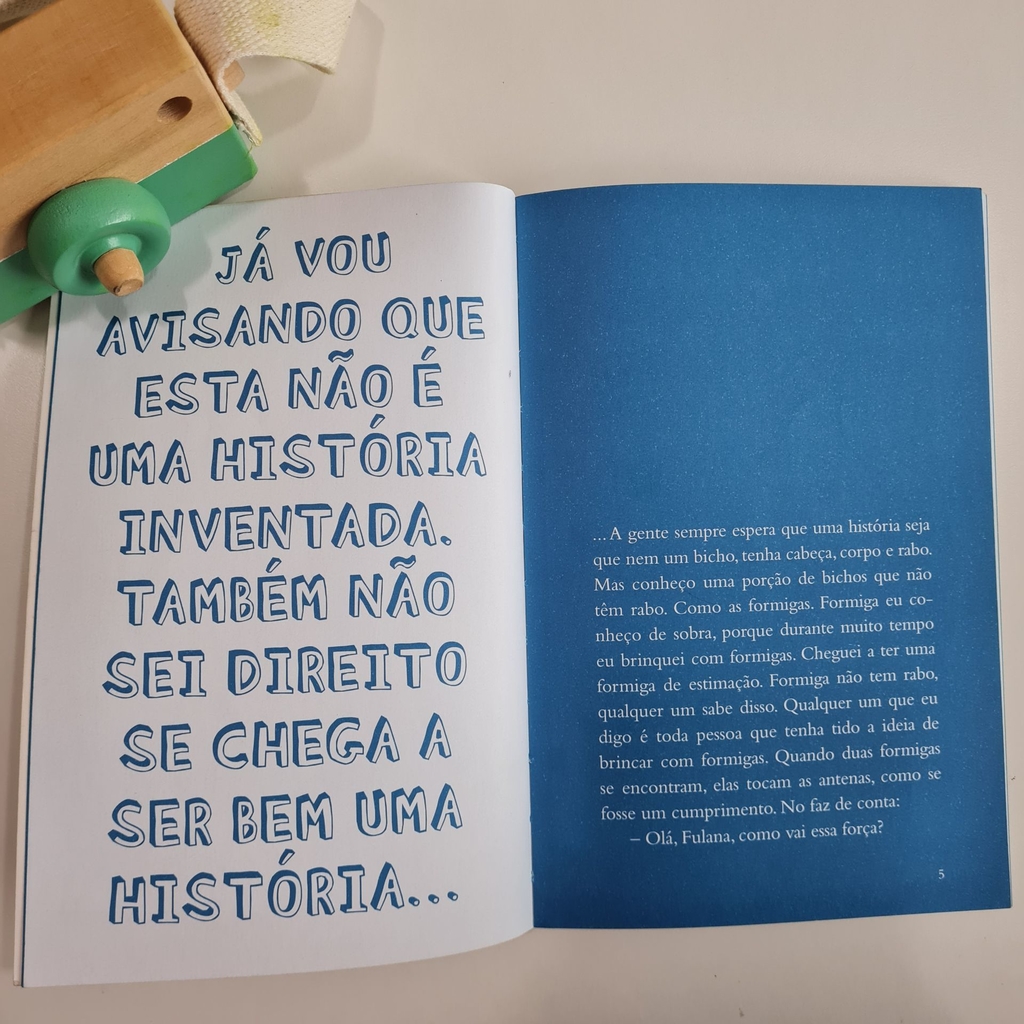 JÁ VOU
AVISANDO QUE
ESTA NÃO É
UMA HISTÓRIA
INVENTADA.
TAMBÉM NÃO
SEI DIREITO
SE CHEGA A
SER BEM UMA
HISTÓRIA...
...A gente sempre espera que uma história seja
que nem um bicho, tenha cabeça, corpo e rabo.
Mas conheço uma porção de bichos que não
têm rabo. Como as formigas. Formiga eu co-
nheço de sobra, porque durante muito tempo
eu brinquei com formigas. Cheguei a ter uma
formiga de estimação. Formiga não tem rabo,
qualquer um sabe disso. Qualquer um que eu
digo é toda pessoa que tenha tido a ideia de
brincar com formigas. Quando duas formigas
se encontram, elas tocam as antenas, como se
fosse um cumprimento. No faz de conta:
– Olá, Fulana, como vai essa força?
5